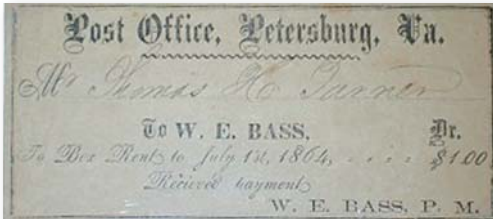 Post Office, Petersburg, Va.
Mr Thomas H Tanner
To W. E. BASS. Dr.
To Box Rent to July 1st, 1864, . . . . $1.00
Recieved payment
W. E. BASS, P. M.